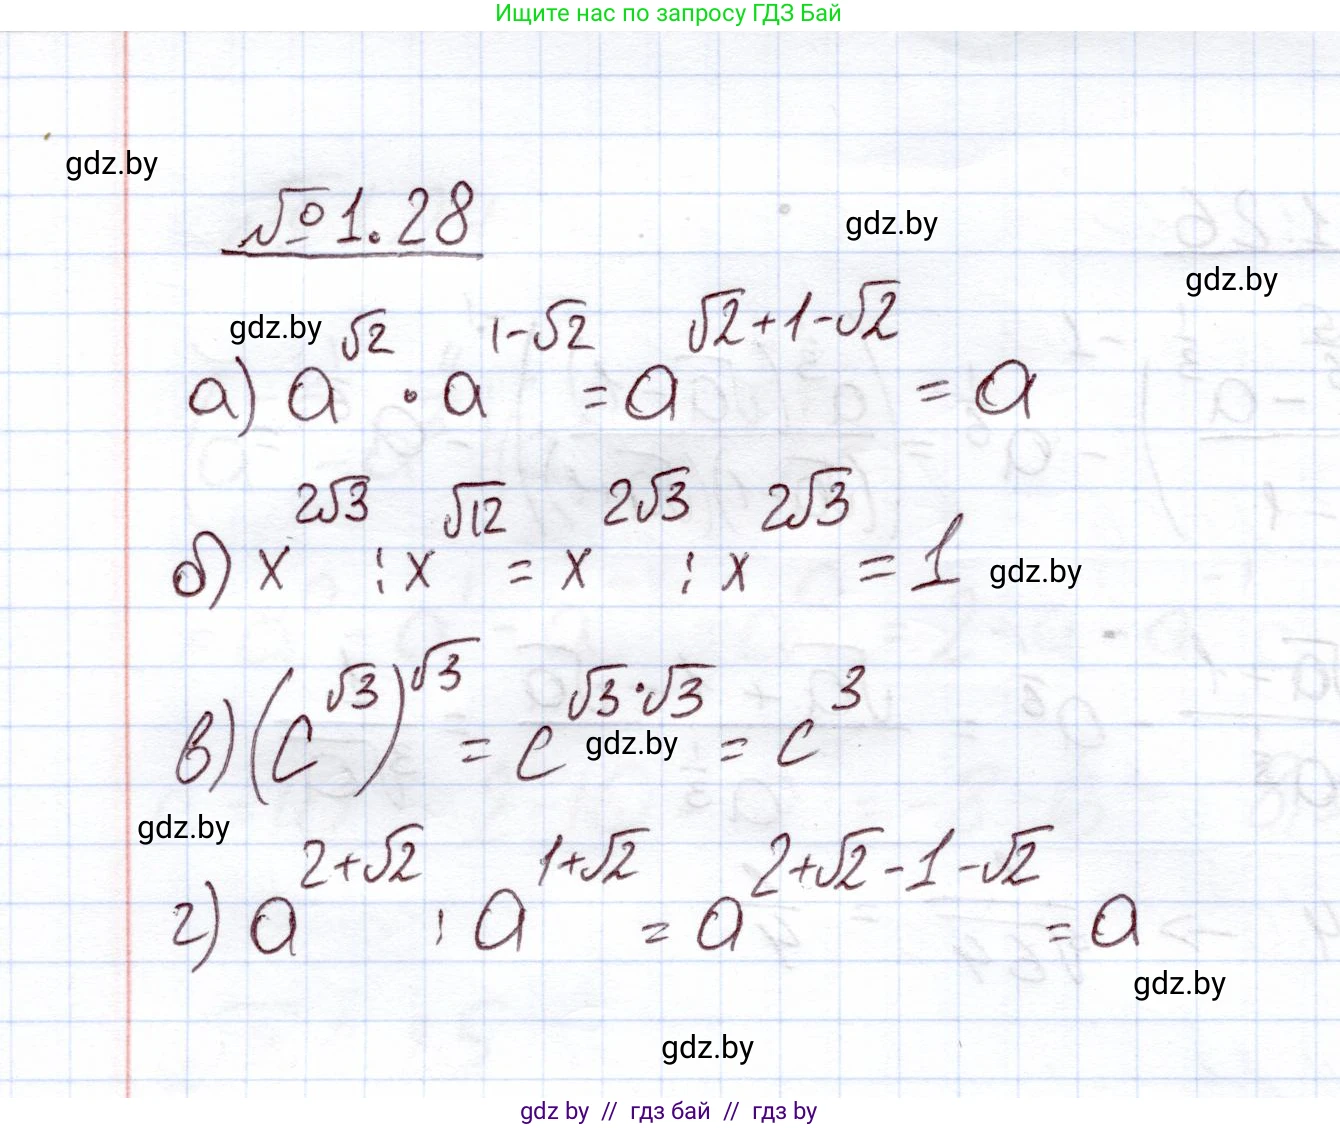 Ищите нас по запросу ГДЗ Бай
gdz.by
№1.28
gdz.by
gdz.by
gdz.by
а) a^{√2} · a^{1-√2} = a^{√2+1-√2} = a
б) x^{2√3} : x^{√12} = x^{2√3} : x^{2√3} = 1
gdz.by
в) (c^{√3})^{√3} = c^{√3·√3} = c^3
gdz.by
gdz.by
г) a^{2+√2} : a^{1+√2} = a^{2+√2-1-√2} = a
gdz.by
gdz.by
gdz by // гдз бай // гдз by